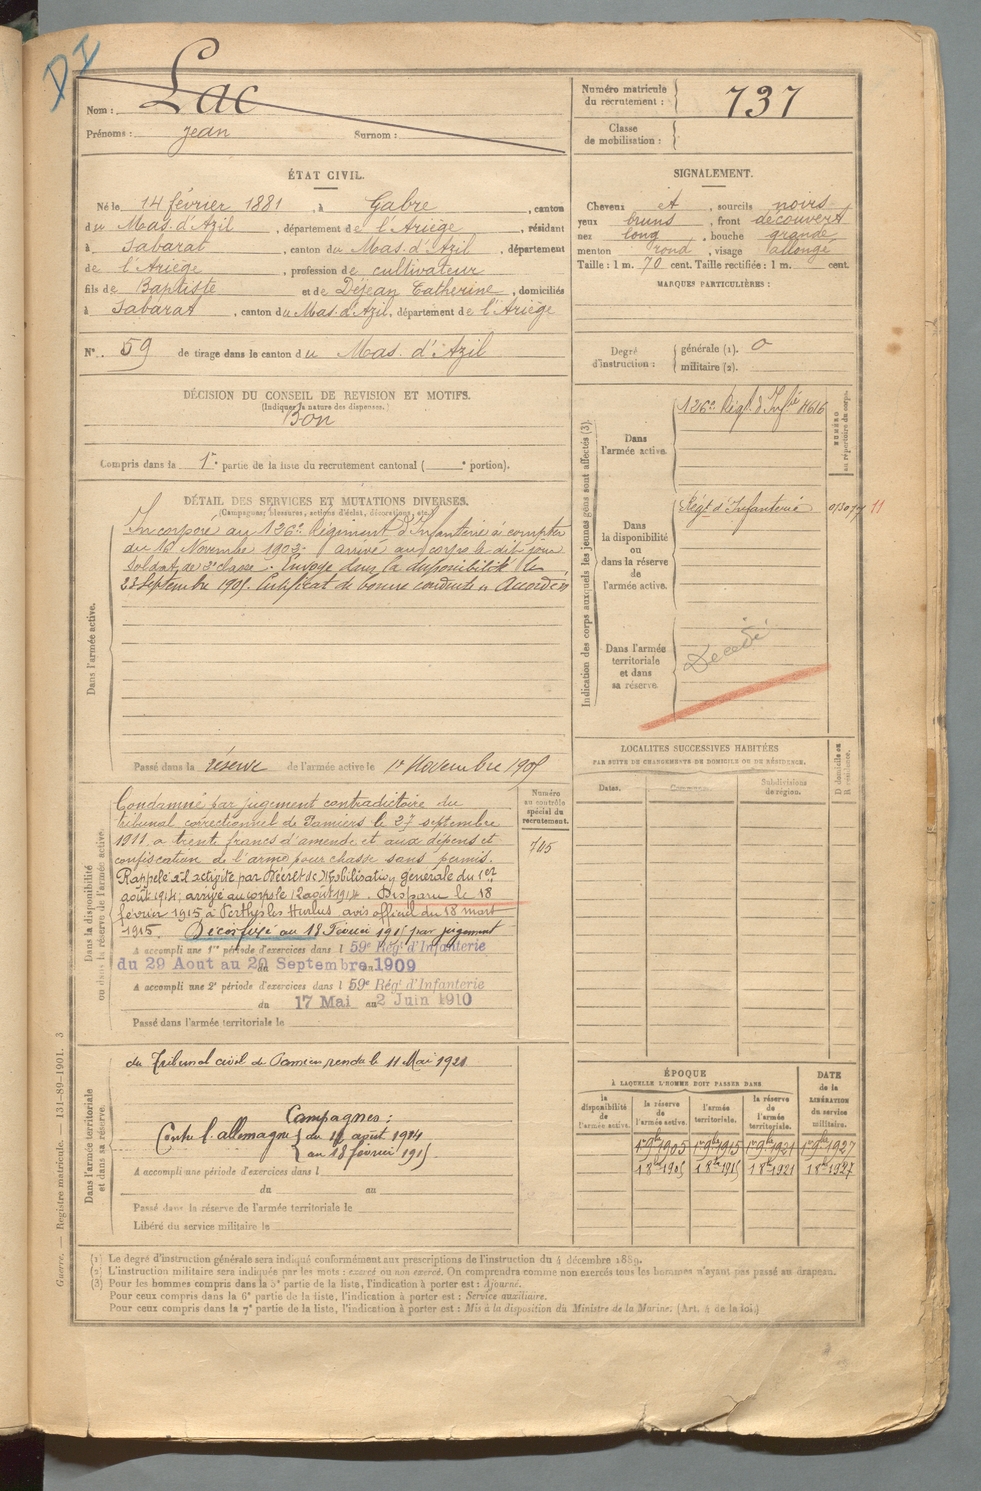 DI
Nom : Lac
Prénoms : Jean Surnom :
Numéro matricule du recrutement : 737
Classe de mobilisation :
ÉTAT CIVIL.
Né le 14 février 1881, à Gabre, canton
du Mas-d'Azil, département de l'Ariège, résidant
à Sabarat, canton du Mas-d'Azil, département
de l'Ariège, profession de cultivateur
fils de Baptiste et de Déjean Catherine, domiciliés
à Sabarat, canton du Mas-d'Azil, département de l'Ariège
N° 59 de tirage dans le canton du Mas-d'Azil
SIGNALEMENT.
Cheveux et, sourcils noirs
yeux bruns, front découvert
nez long, bouche grande
menton rond, visage allongé
Taille : 1 m. 70 cent. Taille rectifiée : 1 m. cent.
MARQUES PARTICULIÈRES :
Degré d'instruction : générale (1). 0
militaire (2).
DÉCISION DU CONSEIL DE REVISION ET MOTIFS.
(Indiquer la nature des dispenses.)
Bon
Compris dans la 1re partie de la liste du recrutement cantonal ( e portion).
DÉTAIL DES SERVICES ET MUTATIONS DIVERSES.
(Campagnes, blessures, actions d'éclat, décorations, etc.)
Dans l'armée active.
Incorporé au 126e Régiment d'Infanterie à compter
du 16 Novembre 1902. arrivé au corps le dit jour
Soldat de 2e classe. Envoyé dans la disponibilité le
23 Septembre 1905. Certificat de bonne conduite "Accordé"
Passé dans la réserve de l'armée active le 1er Novembre 1905
Indication des corps auxquels les jeunes gens sont affectés (3).
NUMÉRO au répertoire du corps.
Dans l'armée active.
126e Régt d'Infie 4616
Dans la disponibilité ou dans la réserve de l'armée active.
Régt d'Infanterie 11
Dans l'armée territoriale et dans sa réserve.
Décédé
Dans la disponibilité ou dans la réserve de l'armée active.
Numéro au contrôle spécial du recrutement.
705
Condamné par jugement contradictoire du
tribunal correctionnel de Pamiers le 27 septembre
1911 à trente francs d'amende et aux dépens et
confiscation de l'arme pour chasse sans permis.
Rappelé à l'activité par Décret de Mobilisation générale du 1er
août 1914; arrivé au corps le 12 août 1914. Disparu le 18
février 1915 à Perthes les Hurlus avis officiel du 18 mars
1915. Décès fixé au 18 Février 1915 par jugement
A accompli une 1re période d'exercices dans l 59e Régt d'Infanterie
du 29 Aout au 20 Septembre 1909
A accompli une 2e période d'exercices dans l 59e Régt d'Infanterie
du 17 Mai au 2 Juin 1910
Passé dans l'armée territoriale le
LOCALITÉS SUCCESSIVES HABITÉES
PAR SUITE DE CHANGEMENTS DE DOMICILE OU DE RÉSIDENCE.
Dates. Communes. Subdivisions de région. D domicile ou R résidence.
Dans l'armée territoriale et dans sa réserve.
du Tribunal civil de Pamiers rendu le 11 Mai 1921
Campagnes :
Contre l'allemagne du 12 août 1914
au 18 février 1915
A accompli une période d'exercices dans l
du au
Passé dans la réserve de l'armée territoriale le
Libéré du service militaire le
ÉPOQUE
À LAQUELLE L'HOMME DOIT PASSER DANS
la disponibilité de l'armée active. la réserve de l'armée active. l'armée territoriale. la réserve de l'armée territoriale. DATE de la LIBÉRATION du service militaire.
1er 9bre 1905 1er 9bre 1915 1er 9bre 1921 1er 9bre 1927
1 8bre 1905 1 8bre 1915 1 8bre 1921 1 8bre 1927
(1) Le degré d'instruction générale sera indiqué conformément aux prescriptions de l'instruction du 4 décembre 1889.
(2) L'instruction militaire sera indiquée par les mots : exercé ou non exercé. On comprendra comme non exercés tous les hommes n'ayant pas passé au drapeau.
(3) Pour les hommes compris dans la 5e partie de la liste, l'indication à porter est : Ajourné.
Pour ceux compris dans la 6e partie de la liste, l'indication à porter est : Service auxiliaire.
Pour ceux compris dans la 7e partie de la liste, l'indication à porter est : Mis à la disposition du Ministre de la Marine. (Art. 4 de la loi.)
Guerre. — Registre matricule. 131-89-1901. 3